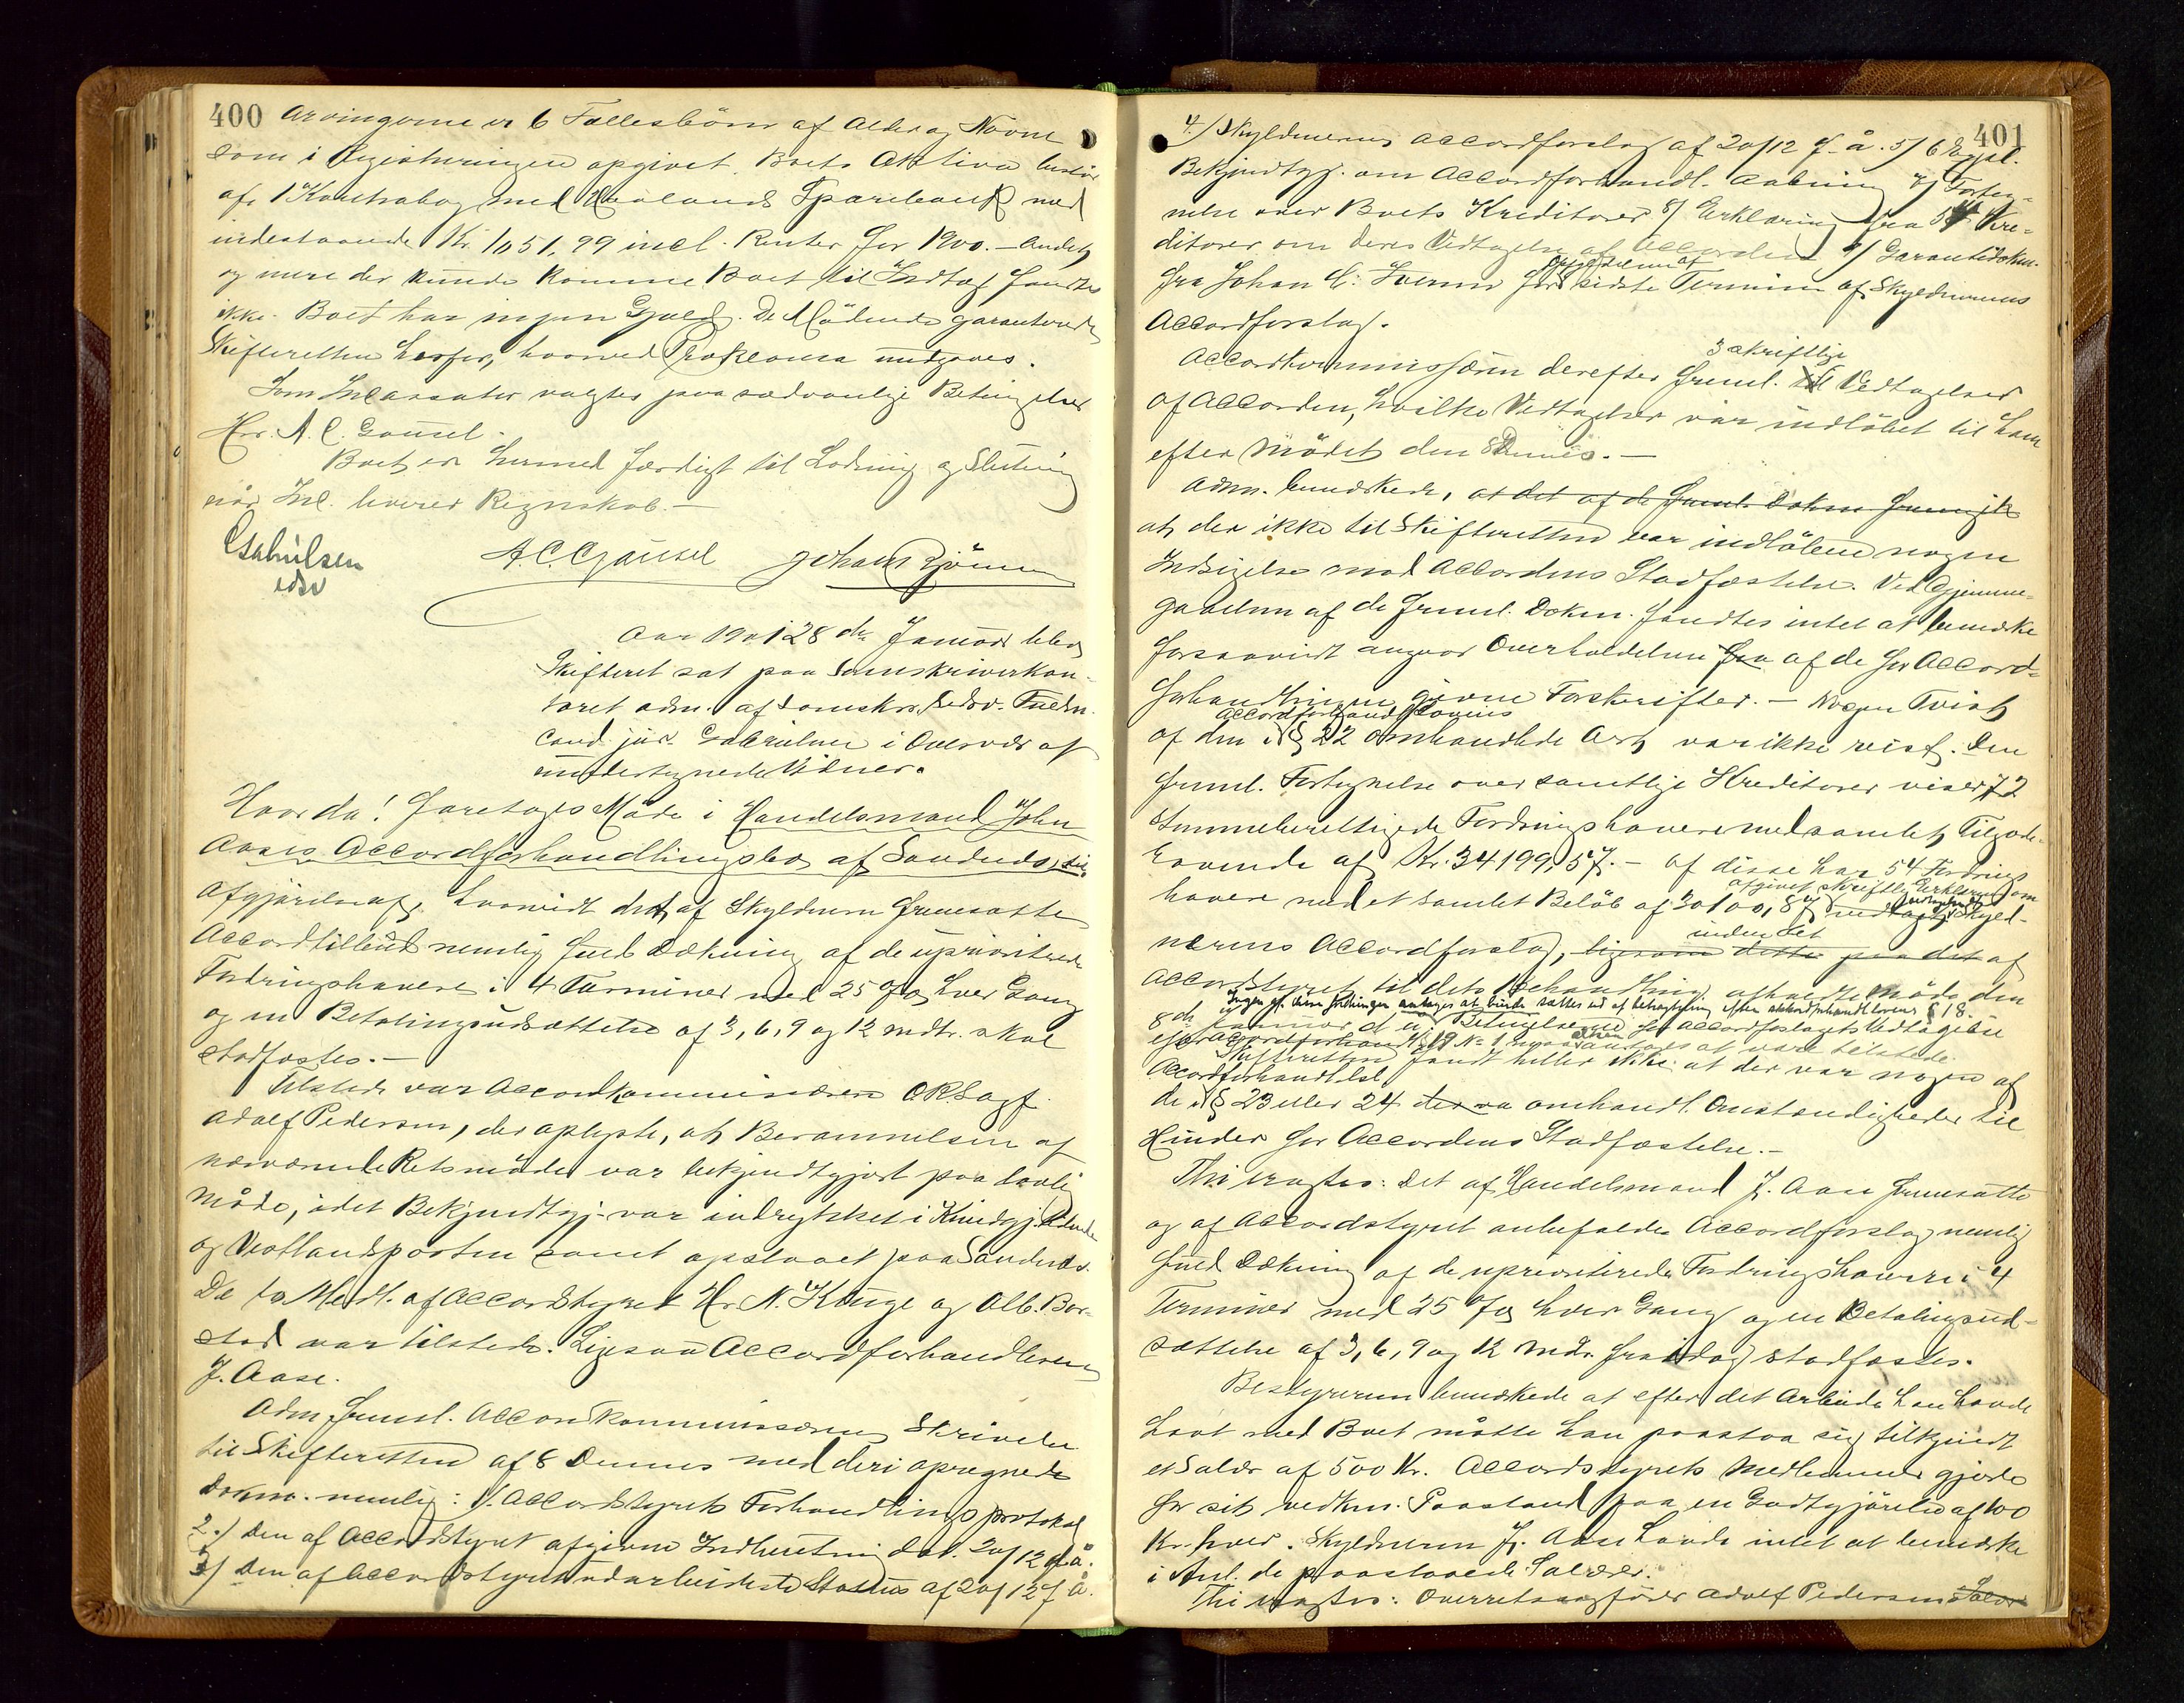 400 Arvingerne er 6 Fællesbörn af Alder og Navne
som i Registreringen opgivet. Boets Aktiva bestör
af 1 Kontrabog med Sparebank med
indestaaende Kr. 1051,99 incl. Renter for 1900. – Andet
og mere der kunde komme Boet til Indtægt fandtes
ikke. Boet har ingen Gjæld. De Mödende garanterede
Skifteretten herfor, hvorved Proklama undgaaes.
Som Incassator valgtes paa sædvanlige Betingelser
Hr. A. C. Gausel.
Boet er hermed færdigt til Lodning og Slutning
når Inc. leverer Regnskab. –
Gabrielsen A. C. Gausel Johan Björnsen
edsv
Aar 1901 28de Januar blev
Skifteret sat paa Sorenskriverkon-
toret adm. af Sorenskr. edsv. Fuldm.
cand. jur. Gabrielsen i Overvær af
undertegnede Vidner.
Hvorda! foretoges Möde i Handelsmand John
Aases Accordforhandlingsbo af Sandnes, til
Afgjörelse af, hvorvidt det af Skyldneren fremsatte
Accordtilbud nemlig fuld Dækning af de upriviterede
Fordringshavere i 4 Terminer med 25 % hver Gang
og en Betalingsudsættelse af 3, 6, 9 og 12 mdr. skal
stadfæstes. –
Tilstede var Accordkommissæren ORSagf.
Adolf Pedersen, der oplyste, at Berammelsen af
nærværende Retsmöde var bekjendtgjort paa lovlig
Måde, idet Bekjendtgj. var indrykket i Kundgj.tidende
og Vestlandsposten samt opslaaet paa Sandnes.
De to Medl. af Accordstyret Hr. N. Kluge og Alb. Bor-
stad var tilstede. Ligesaa Accordforhandleren
J. Aase.
Adm. freml. Accordkommissærens Skrivelse
til Skifteretten af 8 Dennes med deri opregnede
Dokm. nemlig: 1/ Accordstyrets Forhandlingsprotokol
2.) Den af Accordstyret afgivne Indberetning dat. 20/12 f.å.
3/ Den af Accordstyret udarbeidede Status af 20/12 f. å.
401
4.) Skyldnerens Accordforslag af 20/12 f. å. 5/ 6 Expl.
Bekjendtgj. om Accordforhandl. Aabning 7/ Forteg-
nelse over Boets Kreditorer 8/ Erklæring fra 54 Kre-
ditorer om deres Vedtagelse af Accorden 9/ Garantidokm.
opfyldelse af
fra Johan C. for sidste Termin af Skyldnerens
Accordforslag.
3 skriftlige
Accordkommissæren derefter freml. Vedtagelser
af Accorden, hvilke Vedtagelser var indlöbet til ham
efter Mödet den 8 Dennes. –
Adm. bemærkede, at det af de freml. Dokm. fremgik
at der ikke til Skifteretten var indlöben nogen
Indsigelse mod Accordens Stadfæstelse. Ved Gjennem-
gaaelsen af de freml. Dokm. fandtes intet at bemærke
forsaavidt angaar Overholdelsen fra af de for Accord-
forhandlingen givne Forskrifter. – Nogen Tvist
Accordforhandl.lovens
af den i § 22 omhandlede Art var ikke reist. Den
freml. Fortegnelse over samtlige Kreditorer viser 72
stemmeberettigede Fordringshavere med samlet Tilgode-
havende af Kr. 34199,57. – Af disse har 54 Fordrings
afgivet skriftlig Erklæring om
havere med et samlet Belöb af 30100,84 vedtaget Skyld-
inden det
nerens Accordforslag, ligesom dette paa det af
Accordstyret til dets Behandling afholdte Möde den
Ingen af disse fordringer antages at burde sættes ud af betragtning efter akkordforhandllovens § 18.
8de Januar d. a. Betingelserne for Accordforslagets Vedtagelse
efter Accordforhandl. § 19 No 1 antages at være tilstede.
Skifteretten fandt heller ikke at der var nogen af
Accordforhandl.l.
de i § 23 eller 24 der va omhandl. Omstændigheder til
Hinder for Accordens Stadfæstelse. –
Thi eragtes: Det af Handelsmand J. Aase fremsatte
og af Accordstyret anbefalede Accordforslag nemlig
fuld Dækning af de uprioriterede Fordringshavere i 4
Terminer med 25 % hver Gang og en Betalingsud-
sættelse af 3, 6, 9 og 12 Mdr. fra idag stadfæstes.
Bestyreren bemærkede at efter det Arbeide han havde
havt med Boet måtte han paastaa sig tilkjendt
et Salær af 500 Kr. Accordstyrets Medlemmer gjorde
for sit vedkm. Paastand paa en Godtgjörelse af 100
Kr. hver. Skyldneren J. Aase havde intet at bemærke
i Anl. de paastaaede Salærer.
Thi eragtes: Overretssagförer Adolf Pedersens Salær